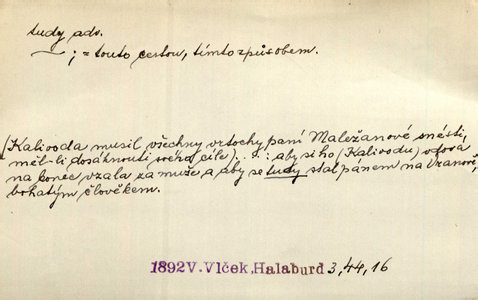 tudy adv.
— ; = touto cestou, tímto způsobem.
(Kalivoda musil všechny vrtochy paní Maležanové snésti,
měl-li dosáhnouti svého cíle) . . : aby si ho (Kalivodu) vdova
na konec vzala za muže a aby se tudy stal pánem na Vranově,
bohatým člověkem.
1892 V. Vlček, Halaburd 3, 44, 16